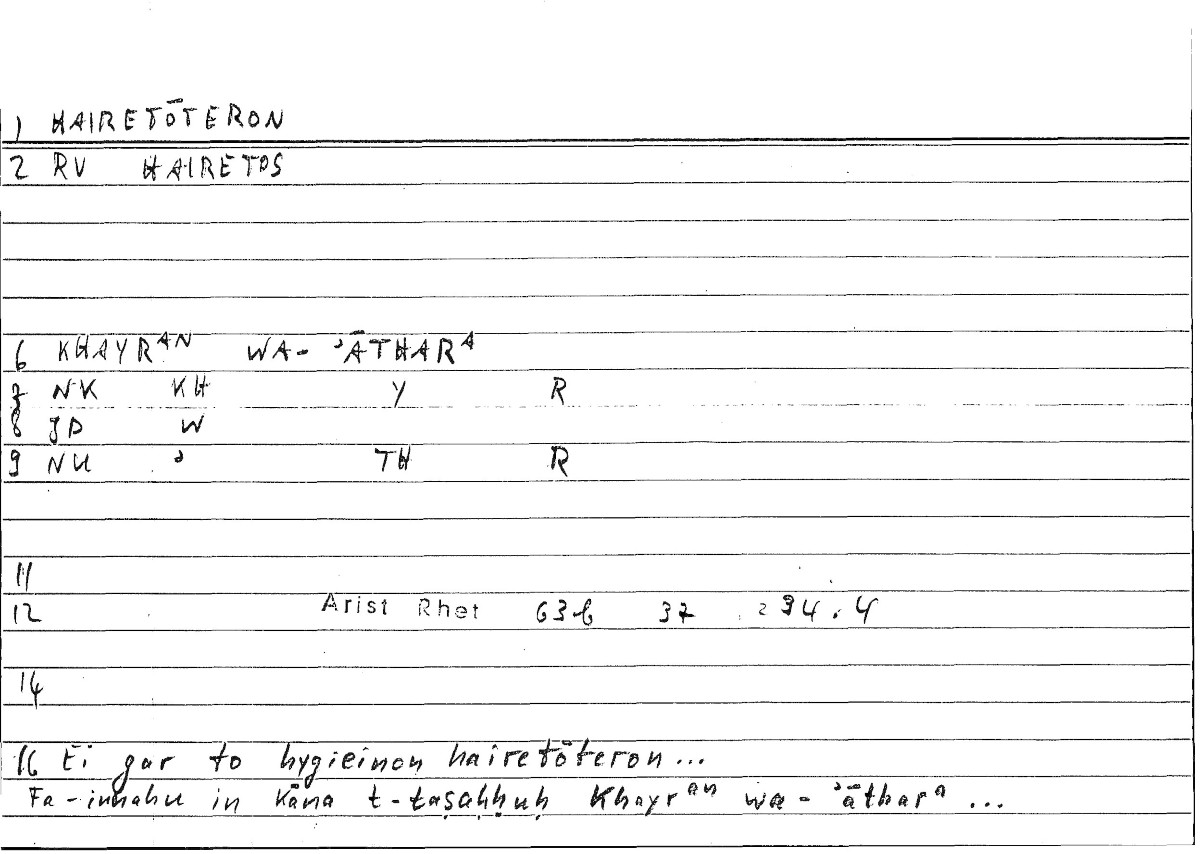 1 HAIRETŌTERON
2 RV HAIRETOS
6 KHAYRᴬᴺ WA-ʾĀTHARᴬ
7 NK KH Y R
8 JD W
9 NU ʾ TH R
11
12 Arist Rhet 63b 37 = 34.4
14
16 Ei gar to hygieinon hairetōteron...
Fa-innahu in kāna t-taṣaḥḥuḥ khayrᵃⁿ wa-ʾātharᵃ ...